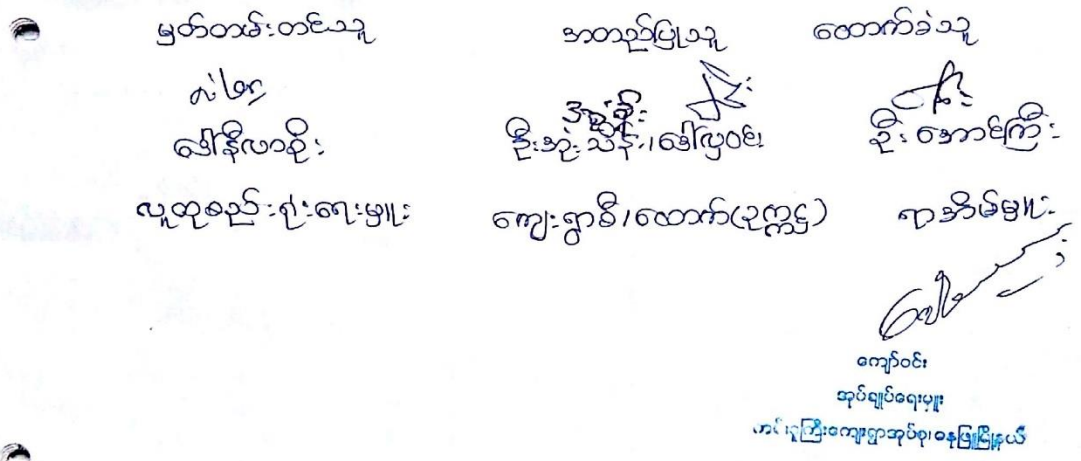 မှတ်တမ်းတင်သူ အတည်ပြုသူ ထောက်ခံသူ
ဒေါ်နီလာစိုး ဦးအုံးသိန်း၊ဒေါ်လှဝင်း ဦးအောင်ကြီး
လူထုစည်းရုံးရေးမှူး ကျေးရွာစီ/ထောက်(ဥက္ကဋ္ဌ) ရာအိမ်မှူး
ကျော်ဝင်း
အုပ်ချုပ်ရေးမှူး
ကျေးရွာအုပ်စု၊ ဓနုဖြူမြို့နယ်